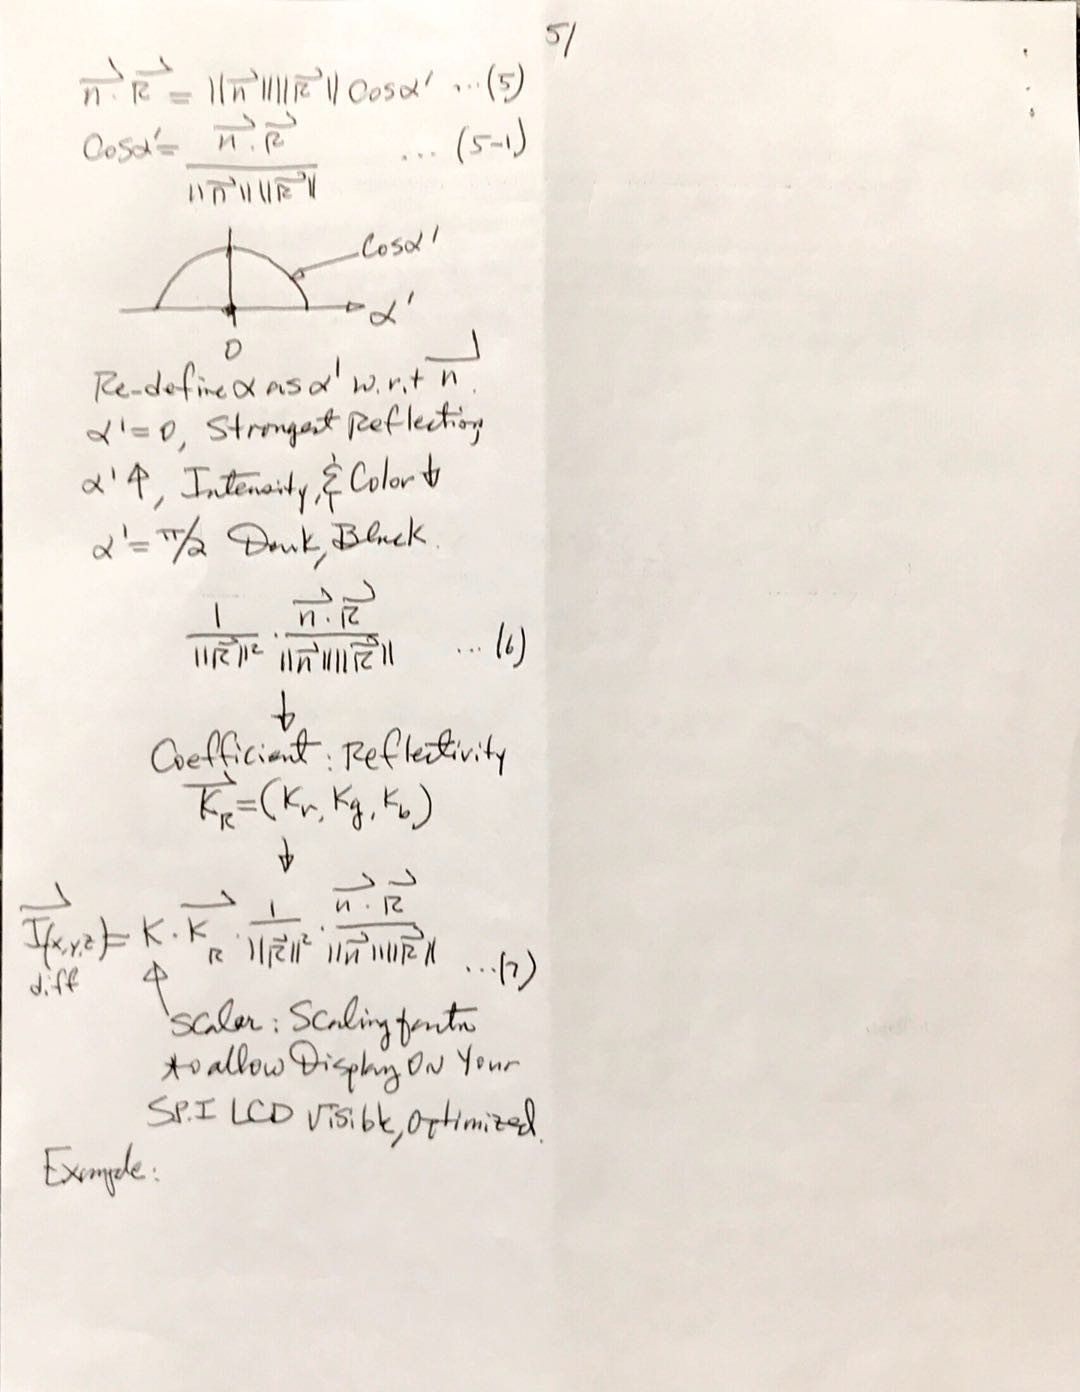 51
n⃗ · R⃗ = ||n⃗|| ||R⃗|| Cosα' ...(5)
Cosα' = n⃗ · R⃗ / ||n⃗|| ||R⃗|| ... (5-1)
Cosα'
α'
0
Re-define α as α' w.r.t n⃗.
α'=0, Strongest Reflection,
α'↑, Intensity, & Color ↓
α'=π/2 Dark, Black.
1 / ||R⃗||² · n⃗ · R⃗ / ||n⃗|| ||R⃗|| ... (6)
↓
Coefficient: Reflectivity
K⃗_R = (Kr, Kg, Kb)
↓
I⃗(x,y,z) diff = K · K⃗_R · 1 / ||R⃗||² · n⃗ · R⃗ / ||n⃗|| ||R⃗|| ...(7)
Scaler: Scaling factor
to allow Display ON Your
SPI LCD Visible, Optimized.
Example: